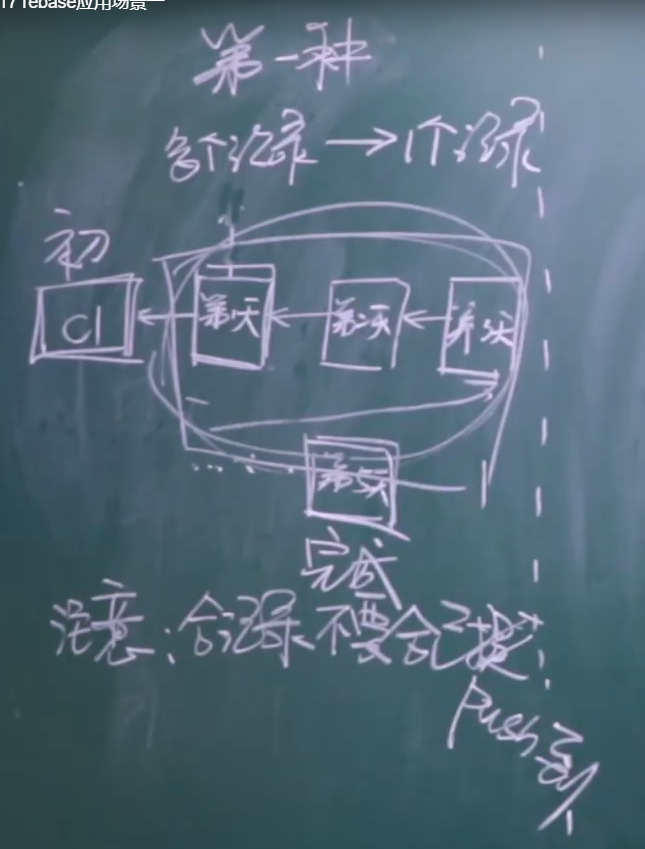 17 rebase应用场景一
第一种
多个记录→1个记录
初
C1 第1天 第二天 第3天
第5天
完成
注意:合记录不要合已
push到